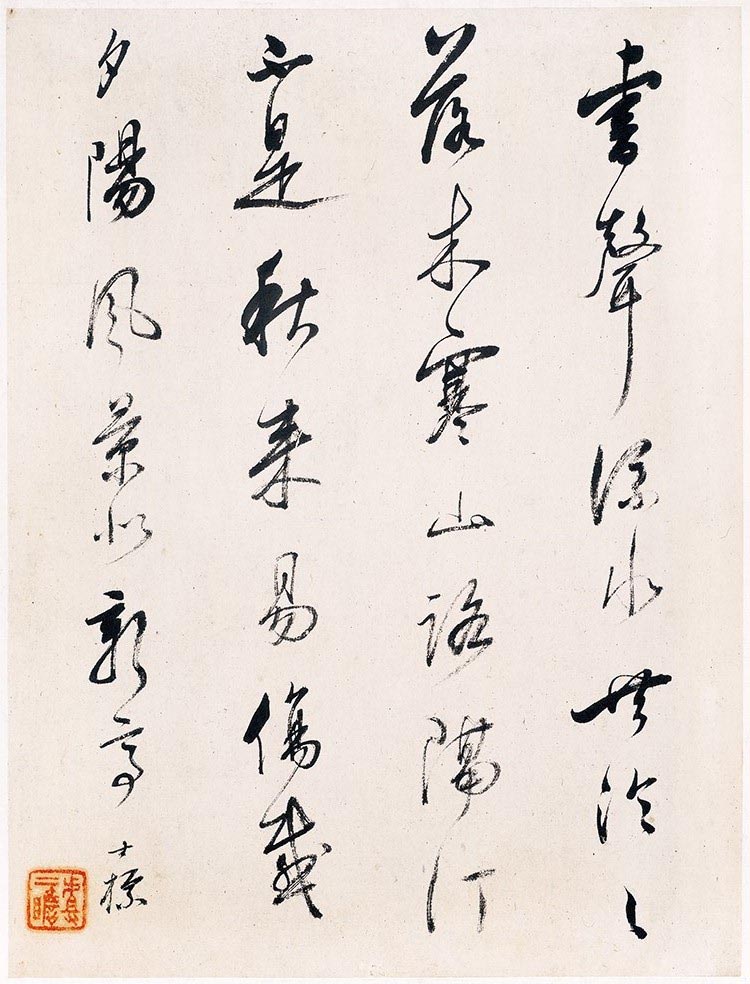 書聲水共泠〻
落木寒山路隔汀
不是秋來易傷感
夕陽風景似新亭 士標